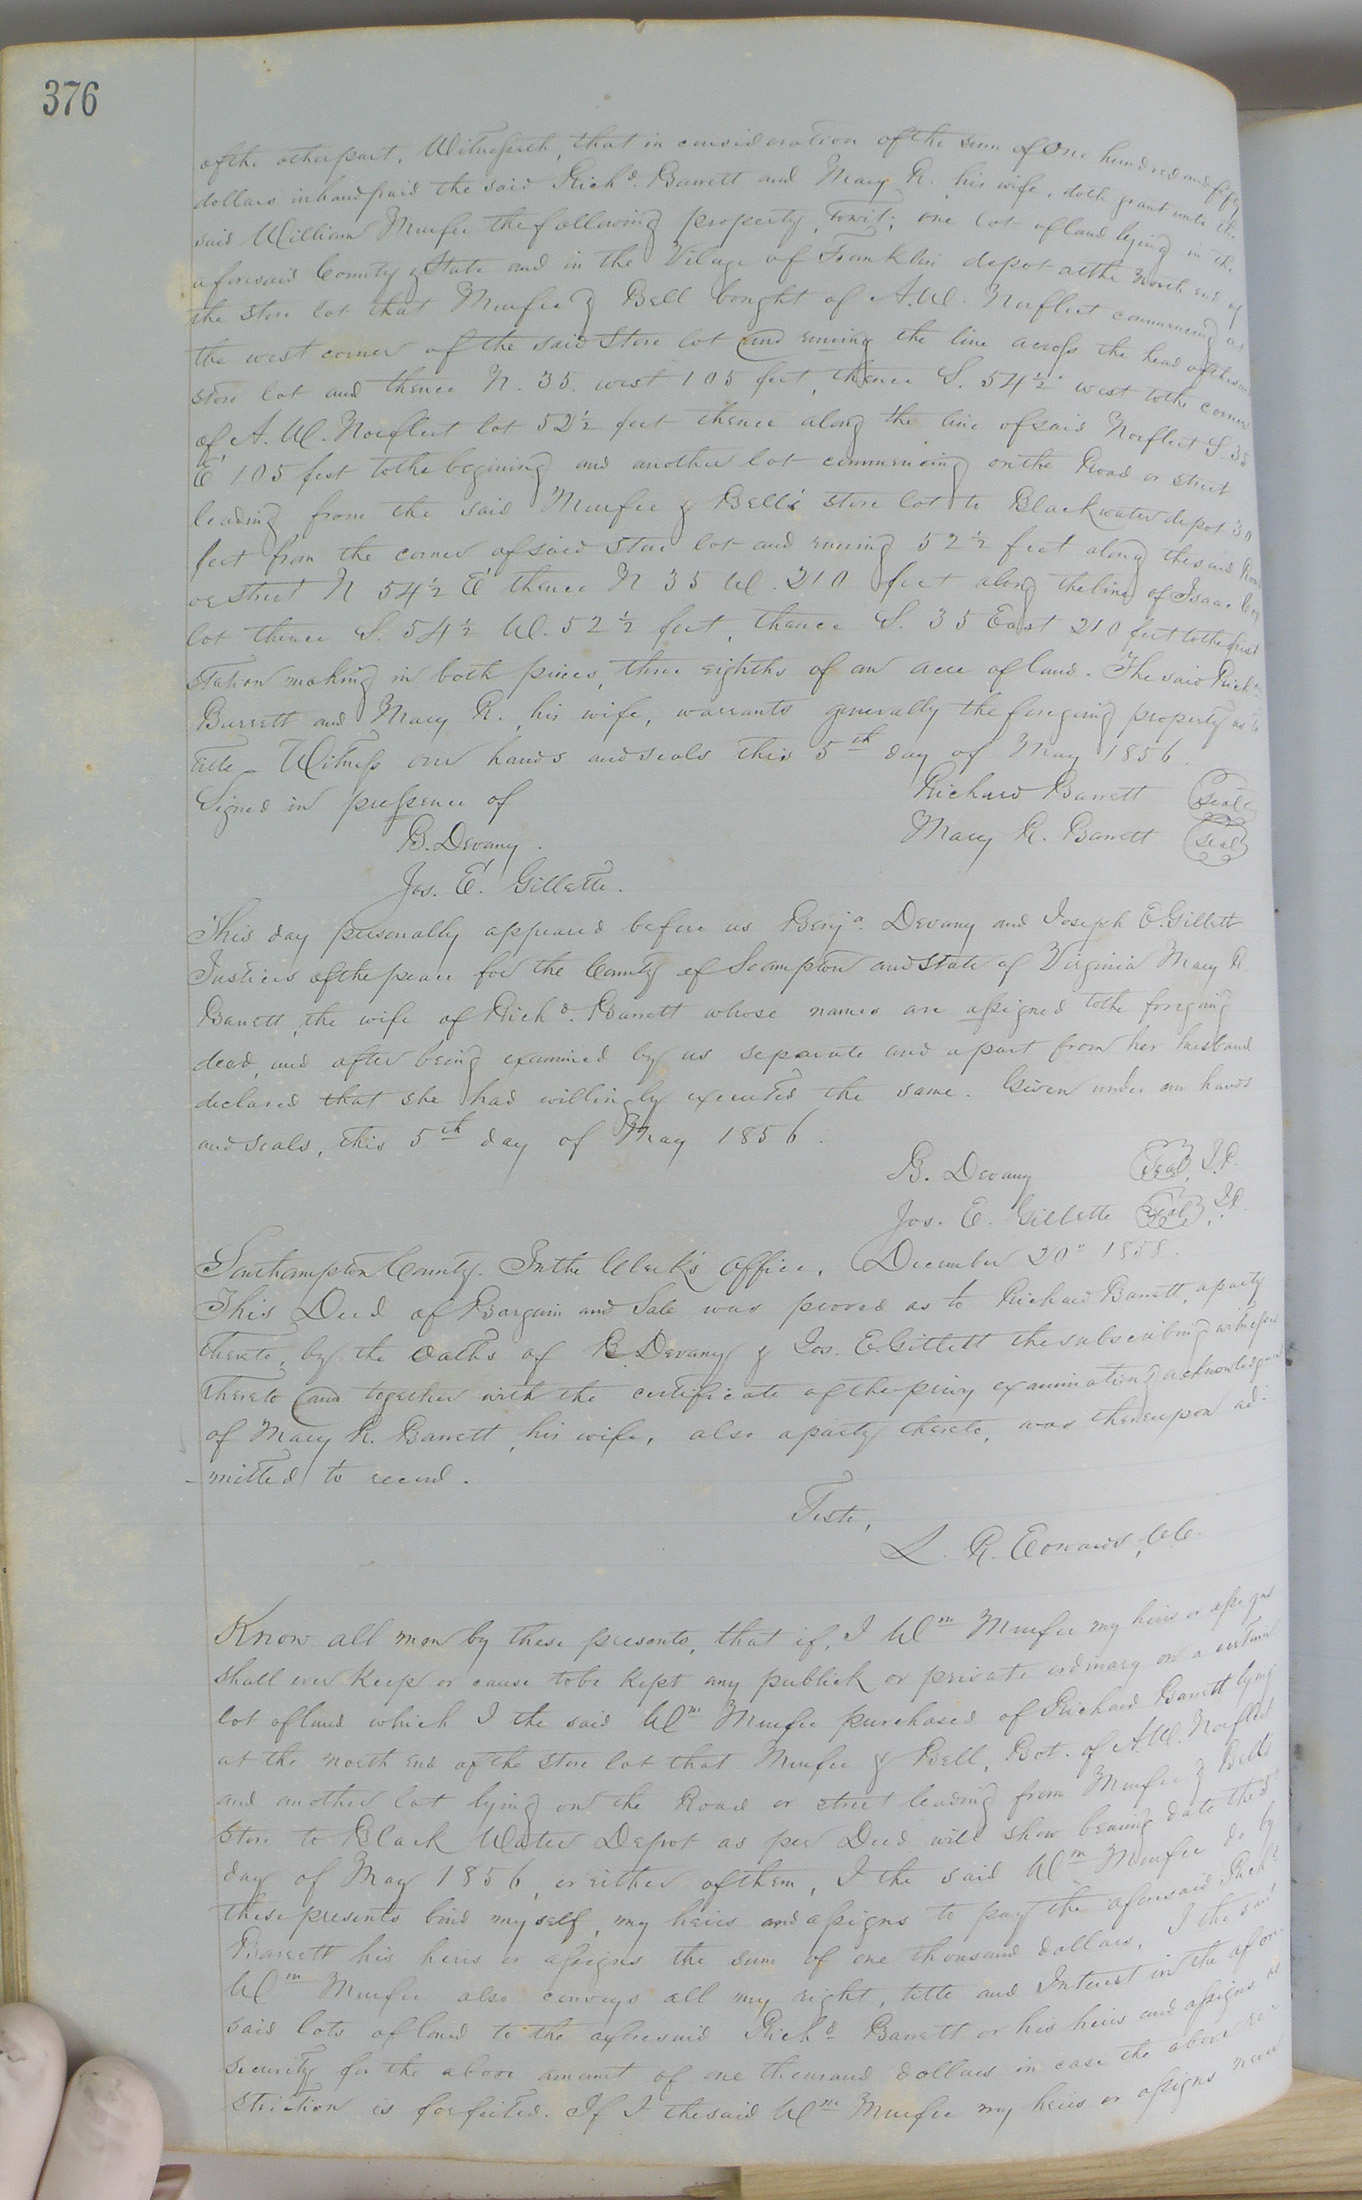 376
of the other part. Witnesseth, that in consideration of the sum of One hundred and fifty
dollars in hand paid the said Richd. Barrett and Mary R. his wife, doth grant unto the
said William Murfee the following property, towit; one lot of land lying in the
aforesaid County & State and in the Village of Franklin depot at the North end of
the store lot that Murfee & Bell bought of A.W. Norfleet commencing at
the west corner of the said Store lot and runing the line across the head of the said
store lot and thence N. 35. west 105 feet, thence S. 54½ west to the corner
of A. W. Norfleet lot 52½ feet thence along the line of said Norfleet S. 35
E 105 feet to the begining and another lot commencing on the Road or street
leading from the said Murfee & Bell's store lot to Blackwater depot 30
feet from the corner of said store lot and runing 52½ feet along the said Road
or street N 54½ E thence N 35 W. 210 feet along the line of Isaac
lot thence S. 54½ W. 52½ feet, thence S. 35 East 210 feet to the first
station making in both pieces, three eighths of an acre of land. The said Richd
Barrett and Mary R. his wife, warrants generally the foregoing property as to
title. Witness our hands and seals this 5th day of May 1856.
Signed in presence of Richard Barrett (Seal)
B. Devany. Mary R. Barrett (Seal)
Jos. E. Gillette.
This day personally appeared before us Benja. Devany and Joseph E. Gillett
Justices of the peace for the County of Soampton and State of Virginia Mary R
Barrett, the wife of Richd. Barrett whose names are assigned to the foregoing
deed, and after being examined by us separate and apart from her husband
declared that she had willingly executed the same. Given under our hands
and seals, this 5th day of May 1856.
B. Devany (Seal) J.P.
Jos. E. Gillette (Seal) J.P.
Southampton County. In the Clerk's Office, December 20" 1858.
This Deed of Bargain and Sale was proved as to Richard Barrett, a party
thereto, by the oaths of B. Devany & Jos. E. Gillett the subscribing witnesses
thereto and together with the certificate of the privy examination & acknowledgment
of Mary R. Barrett, his wife, also a party thereto, was thereupon ad-
-mitted to record.
Teste,
L. R. Edwards, C.C.
Know all men by these presents, that if, I Wm Murfee my heirs or assigns
shall ever keep or cause to be kept any publick or private ordinary on a certain
lot of land which I the said Wm Murfee purchased of Richard Barrett lying
at the north end of the store lot that Murfee & Bell, Bot. of A.W. Norfleet
and another lot lying on the Road or street leading from Murfee & Bells
store to Black Water Depot as per Deed will show bearing date the 5th
day of May 1856, or either of them, I the said Wm Murfee do by
these presents bind myself, my heirs and assigns to pay the aforesaid Richd.
Barrett his heirs or assigns the sum of one thousand dollars, I the said
Wm Murfee also conveys all my right, title and Interest in the afore
said lots of land to the aforesaid Richd Barrett or his heirs and assigns as
security for the above amount of one thousand dollars in case the above re-
striction is forfeited. If I the said Wm Murfee my heirs or assigns never